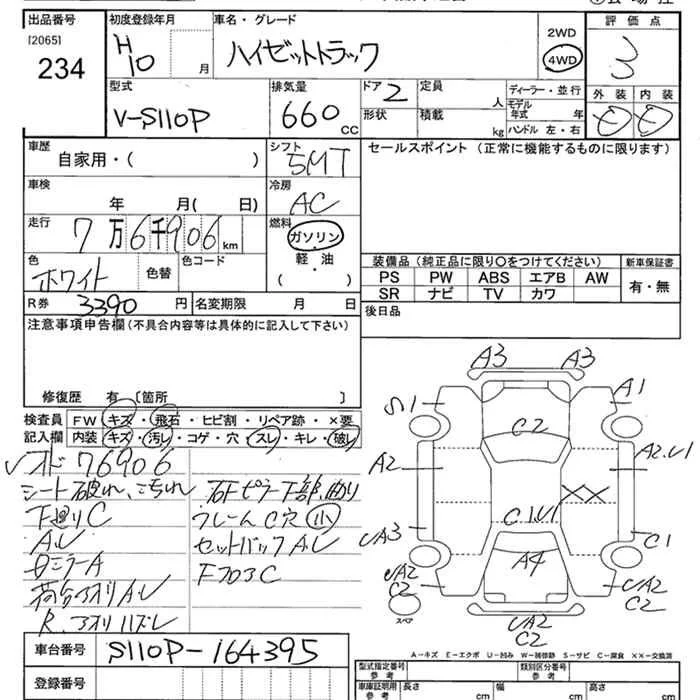 出品番号 初度登録年月 車名・グレード 評価点
[2065]
234
H10 月
ハイゼットトラック
2WD
4WD
3
外装 内装
型式 排気量 ドア 定員 ディーラー・並行
V-S110P 660 CC
2 人
モデル年式 年
形状 積載 kg ハンドル 左・右
車歴 シフト セールスポイント (正常に機能するものに限ります)
自家用・( )
5MT
車検 冷房
年 月( 日)
AC
走行 燃料
7万6千906km
ガソリン
軽・油
( )
色 色替 色コード
ホワイト
装備品 (純正品に限り〇をつけてください) 新車保証書
PS PW ABS エアB AW 有・無
SR ナビ TV カワ
R券 3390円 名変期限 月 日
後日品
注意事項申告欄 (不具合内容等は具体的に記入して下さい)
修復歴 有 〔箇所 〕
検査員 FW キズ・飛石・ヒビ割・リペア跡・×要
記入欄 内装 キズ・汚レ・コゲ・穴・スレ・キレ・破レ
オド 76906
シート破れ、こちれ
下廻りC
AU
ミラーA
荷台アオリAU
R.アオリハズレ
ピラー下部曲り
フレームC穴小
セットバックAU
フロアC
A3 A3
S1 A1
C2
A2 A2.U1
XX
UA3 C1.U1 C1
A4
UA2 C2 UA2 C2
スペア
UA2 C2
A-キズ E-エクボ U-凹み W-補修跡 S-サビ C-腐食 ××-交換済
車台番号 S110P-164395
登録番号
型式指定番号 参考 類別区分番号 参考
車庫証明用 参考 長さ cm 幅 cm 高さ cm